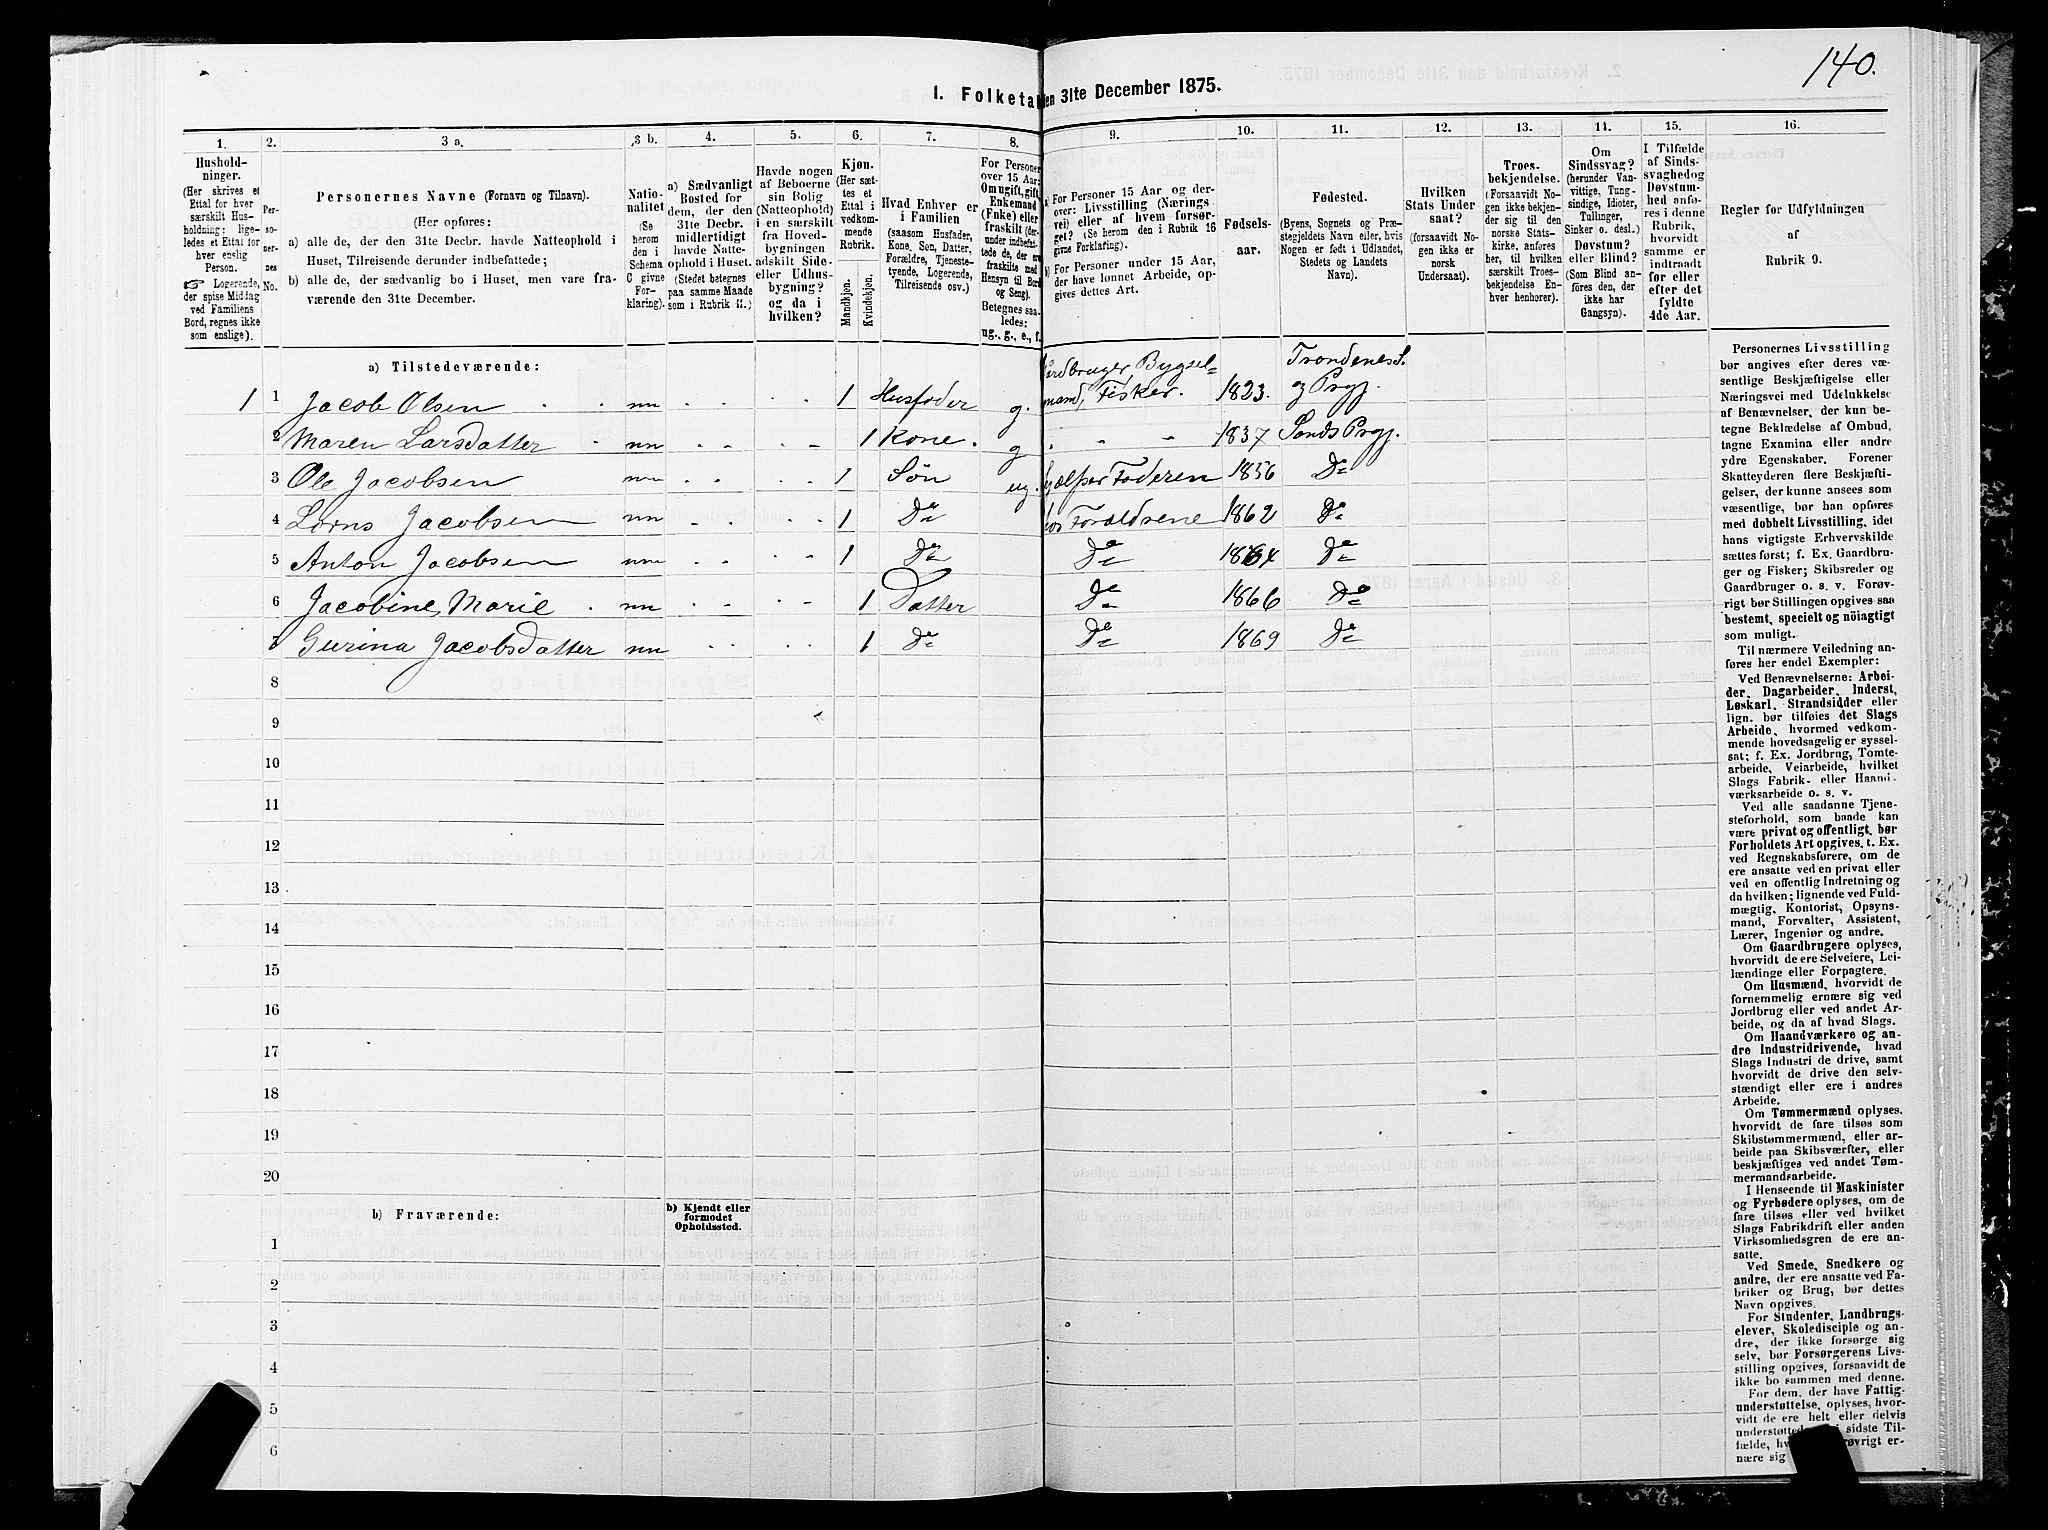 140.
1. Folketa
en 31te December 1875.
1.
2.
3 a.
3 b.
4.
5.
6.
7.
8.
9.
10.
11.
12.
13.
14.
15.
16.
Hushold-
ninger.
(Her skrives et
Ettal for hver
særskilt Hus-
holdning; lige-
ledes et Ettal for
hver enslig
Person.
☞ Logerende,
der spise Middag
ved Familiens
Bord, regnes ikke
som enslige).
Per-
so-
ner-
nes
No.
Personernes Navne (Fornavn og Tilnavn).
(Her opføres:
a) alle de, der den 31te Decbr. havde Natteophold i
Huset, Tilreisende derunder indbefattede;
b) alle de, der sædvanlig bo i Huset, men vare fra-
værende den 31te December.
Natio-
nalitet
(Se
herom
den i
Schema
C givne
For-
klaring).
a) Sædvanligt
Bosted for
dem, der den
31te Decbr.
midlertidigt
havde Natte-
ophold i Huset.
(Stedet betegnes
paa samme Maade
som i Rubrik 11.)
Havde nogen
af Beboerne
sin Bolig
(Natteophold)
i en særskilt
fra Hoved-
bygningen
adskilt Side-
eller Udhus-
bygning?
og da i
hvilken?
Kjøn.
(Her sæt-
tes et
Ettal i
vedkom-
mende
Rubrik.
Mandkjøn.
Kvindekjøn.
Hvad Enhver er
i Familien
(saasom Husfader,
Kone, Søn, Datter,
Forældre, Tjeneste-
tyende, Logerende,
Tilreisende osv.)
For Personer
over 15 Aar:
Om ugift, gift,
Enkemand
(Enke) eller
fraskilt (der-
under indbefat-
tede de, der ere
fraskilte med
Hensyn til Bord
og Seng).
Betegnes saa-
ledes:
ug., g., e., f.
a For Personer 15 Aar og der-
over: Livsstilling (Nærings-
vei) eller af hvem forsør-
get? (Se herom den i Rubrik 16
givne Forklaring).
b) For Personer under 15 Aar,
der have lønnet Arbeide, op-
gives dettes Art.
Fødsels-
aar.
Fødested.
(Byens, Sognets og Præ-
stegjeldets Navn eller, hvis
Nogen er født i Udlandet,
Stedets og Landets
Navn).
Hvilken
Stats Under
saat?
(forsaavidt No-
gen ikke er
norsk
Undersaat).
Troes-
bekjendelse.
(Forsaavidt No-
gen ikke bekjen-
der sig til den
norske Stats-
kirke, anføres
her, til hvilken
særskilt Troes-
bekjendelse En-
hver henhører).
Om
Sindssvag?
(herunder Van-
vittige, Tung-
sindige, Idioter,
Tullinger,
Sinker o. desl.)
Døvstum?
eller Blind?
(Som Blind an-
føres den, der
ikke har
Gangsyn).
I Tilfælde
af Sinds-
svaghed og
Døvstum-
hed anfø-
res i denne
Rubrik,
hvorvidt
samme er
indtraadt
før eller
efter det
fyldte
4de Aar.
Regler for Udfyldningen
af
Rubrik 9.
a) Tilstedeværende:
1 1 Jacob Olsen nn 1 Husfader g. Jordbruger Bygsel= mand, Fisker. 1823. Trondenes S. og Prgj.
2 Maren Larsdatter nn 1 Kone. g 1837 Sands Prgj.
3 Ole Jacobsen nn 1 Søn ug. hjælper Faderen 1856 Do
4 Lorns Jacobsen nn 1 Do hos Forældrene 1862 Do
5 Anton Jacobsen nn 1 Do Do 1864 Do
6 Jacobine Marie nn 1 Datter Do 1866 Do
7 Gurina Jacobsdatter nn 1 Do Do 1869 Do
8
9
10
11
12
13
14
15
16
17
18
19
20
b) Fraværende:
b) Kjendt eller
formodet
Opholdssted.
1
2
3
4
5
6
Personernes Livsstilling
bør angives efter deres væ-
sentlige Beskjæftigelse eller
Næringsvei med Udelukkelse
af Benævnelser, der kun be-
tegne Beklædelse af Ombud,
tagne Examina eller andre
ydre Egenskaber. Forener
Skatteyderen flere Beskjæfti-
gelser, der kunne ansees som
væsentlige, bør han opføres
med dobbelt Livsstilling, idet
hans vigtigste Erhvervskilde
sættes først; f. Ex. Gaardbru-
ger og Fisker; Skibsreder og
Gaardbruger o. s. v. Forøv-
rigt bør Stillingen opgives saa
bestemt, specielt og nöiagtigt
som muligt.
Til nærmere Veiledning an-
føres her endel Exempler:
Ved Benævnelserne: Arbei-
der, Dagarbeider, Inderst,
Løskarl, Strandsidder eller
lign. bør tilføies det Slags
Arbeide, hvormed vedkom-
mende hovedsagelig er syssel-
sat; f. Ex. Jordbrug, Tomte-
arbeide, Veiarbeide, hvilket
Slags Fabrik- eller Haand-
værksarbeide o. s. v.
Ved alle saadanne Tjene-
steforhold, som baade kan
være privat og offentligt, bør
Forholdets Art opgives, t. Ex.
ved Regnskabsførere, om de
ere ansatte ved en privat eller
ved en offentlig Indretning og
da hvilken; lignende ved Fuld-
mægtig, Kontorist, Opsyns-
mand, Forvalter, Assistent,
Lærer, Ingeniør og andre.
Om Gaardbrugere oplyses,
hvorvidt de ere Selveiere, Lei-
lændinge eller Forpagtere.
Om Husmænd, hvorvidt de
fornemmelig ernære sig ved
Jordbrug eller ved andet Ar-
beide, og da af hvad Slags.
Om Haandværkere og an-
dre Industridrivende, hvad
Slags Industri de drive, samt
hvorvidt de drive den selv-
stændigt eller ere i andres
Arbeide.
Om Tømmermænd oplyses,
hvorvidt de fare tilsøs som
Skibstømmermænd, eller ar-
beide paa Skibsværfter, eller
beskjæftiges ved andet Tøm-
mermandsarbeide.
I Henseende til Maskinister
og Fyrbødere oplyses, om de
fare tilsøs eller ved hvilket
Slags Fabrikdrift eller anden
Virksomhedsgren de ere an-
satte.
Ved Smede, Snedkere og
andre, der ere ansatte ved Fa-
briker og Brug, bør dettes
Navn opgives.
For Studenter, Landbrugs-
elever, Skoledisciple og an-
dre, der ikke forsørge sig
selv, bør Forsørgerens Livs-
stilling opgives, forsaavidt de
ikke bo sammen med denne.
For dem, der have Fattig-
understøttelse, oplyses, hvor-
vidt de ere helt eller delvis
understøttede, i sidste Til-
fælde, øvrigt er-
nære sig